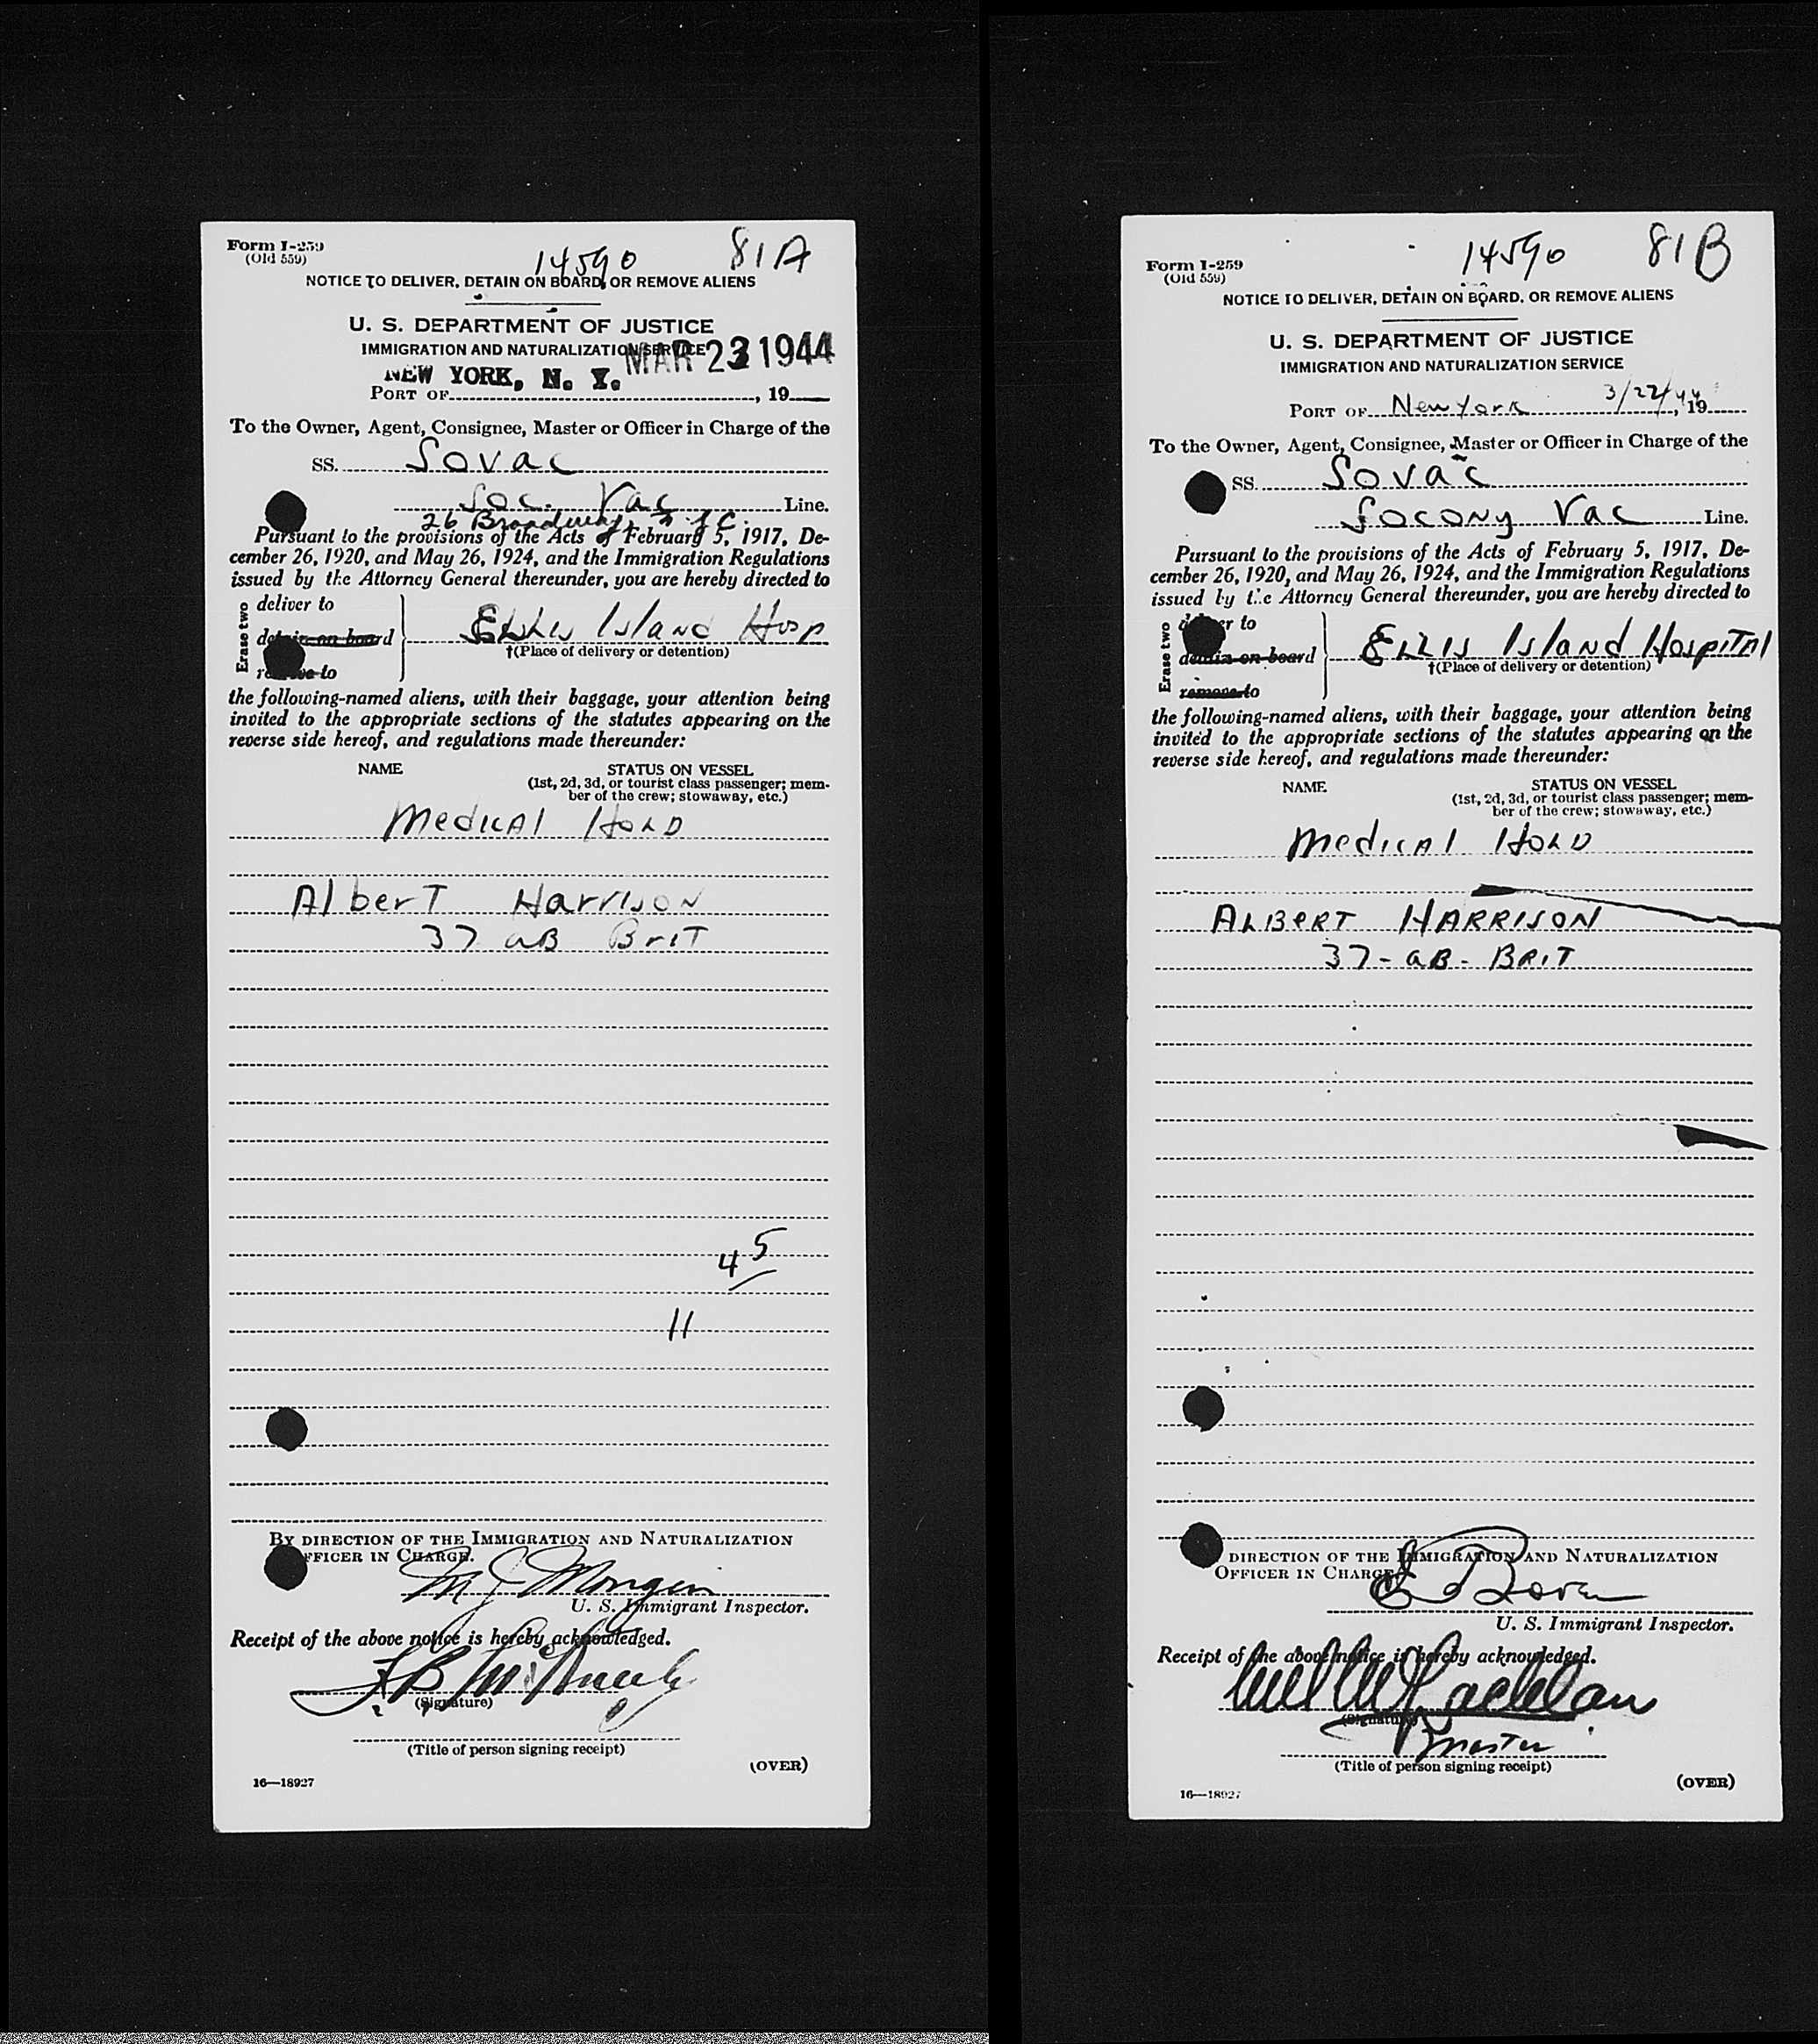 Form I-259
(Old 559)
14590
81A
NOTICE TO DELIVER, DETAIN ON BOARD, OR REMOVE ALIENS
U. S. DEPARTMENT OF JUSTICE
IMMIGRATION AND NATURALIZATION SERVICE
MAR 23 1944
NEW YORK, N. Y.
PORT OF , 19
To the Owner, Agent, Consignee, Master or Officer in Charge of the
SS. Sovac
Soc. Vac Line.
26 Broadway
Pursuant to the provisions of the Acts of February 5, 1917, De-
cember 26, 1920, and May 26, 1924, and the Immigration Regulations
issued by the Attorney General thereunder, you are hereby directed to
Erase two
deliver to
detain on board
remove to
Ellis Island Hosp
†(Place of delivery or detention)
the following-named aliens, with their baggage, your attention being
invited to the appropriate sections of the statutes appearing on the
reverse side hereof, and regulations made thereunder:
NAME STATUS ON VESSEL
(1st, 2d, 3d, or tourist class passenger; mem-
ber of the crew; stowaway, etc.)
Medical Hold
Albert Harrison
37 aB Brit
45
11
BY DIRECTION OF THE IMMIGRATION AND NATURALIZATION
OFFICER IN CHARGE.
U. S. Immigrant Inspector.
Receipt of the above notice is hereby acknowledged.
(Signature)
(Title of person signing receipt)
(OVER)
16—18927
Form I-259
(Old 559)
14590
81B
NOTICE TO DELIVER, DETAIN ON BOARD, OR REMOVE ALIENS
U. S. DEPARTMENT OF JUSTICE
IMMIGRATION AND NATURALIZATION SERVICE
PORT OF New York 3/22/44, 19
To the Owner, Agent, Consignee, Master or Officer in Charge of the
SS. Sovac
Socony Vac Line.
Pursuant to the provisions of the Acts of February 5, 1917, De-
cember 26, 1920, and May 26, 1924, and the Immigration Regulations
issued by the Attorney General thereunder, you are hereby directed to
Erase two
deliver to
detain on board
remove to
Ellis Island Hospital
†(Place of delivery or detention)
the following-named aliens, with their baggage, your attention being
invited to the appropriate sections of the statutes appearing on the
reverse side hereof, and regulations made thereunder:
NAME STATUS ON VESSEL
(1st, 2d, 3d, or tourist class passenger; mem-
ber of the crew; stowaway, etc.)
Medical Hold
ALBERT HARRISON
37 - aB - BRIT
DIRECTION OF THE IMMIGRATION AND NATURALIZATION
OFFICER IN CHARGE
U. S. Immigrant Inspector.
Receipt of the above notice is hereby acknowledged.
(Signature)
Master
(Title of person signing receipt)
(OVER)
16—18927